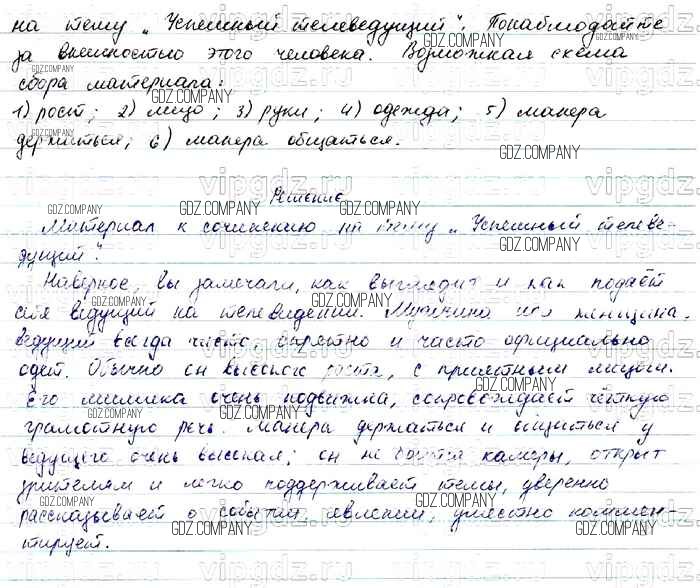 на тему „Успешный телеведущий". Понаблюдайте
за внешностью этого человека. Возможная схема
сбора материала:
1) рост; 2) лицо; 3) руки; 4) одежда; 5) манера
держаться; 6) манера общаться.
Решение
Материал к сочинению на тему „Успешный телеве-
дущий".
Наверное, вы замечали, как выглядит и как подаёт
себя ведущий на телевидении. Мужчина или женщина-
ведущий всегда чисто, опрятно и часто официально
одет. Обычно он высокого роста, с приятным лицом.
Его мимика очень подвижна, сопровождает чёткую
грамотную речь. Манера держаться и общаться у
ведущего очень высокая; он не боится камеры, открыт
зрителям и легко поддерживает темы, уверенно
рассказывает о событии, явлении, уместно коммен-
тирует.
GDZ.COMPANY
vipgdz.ru